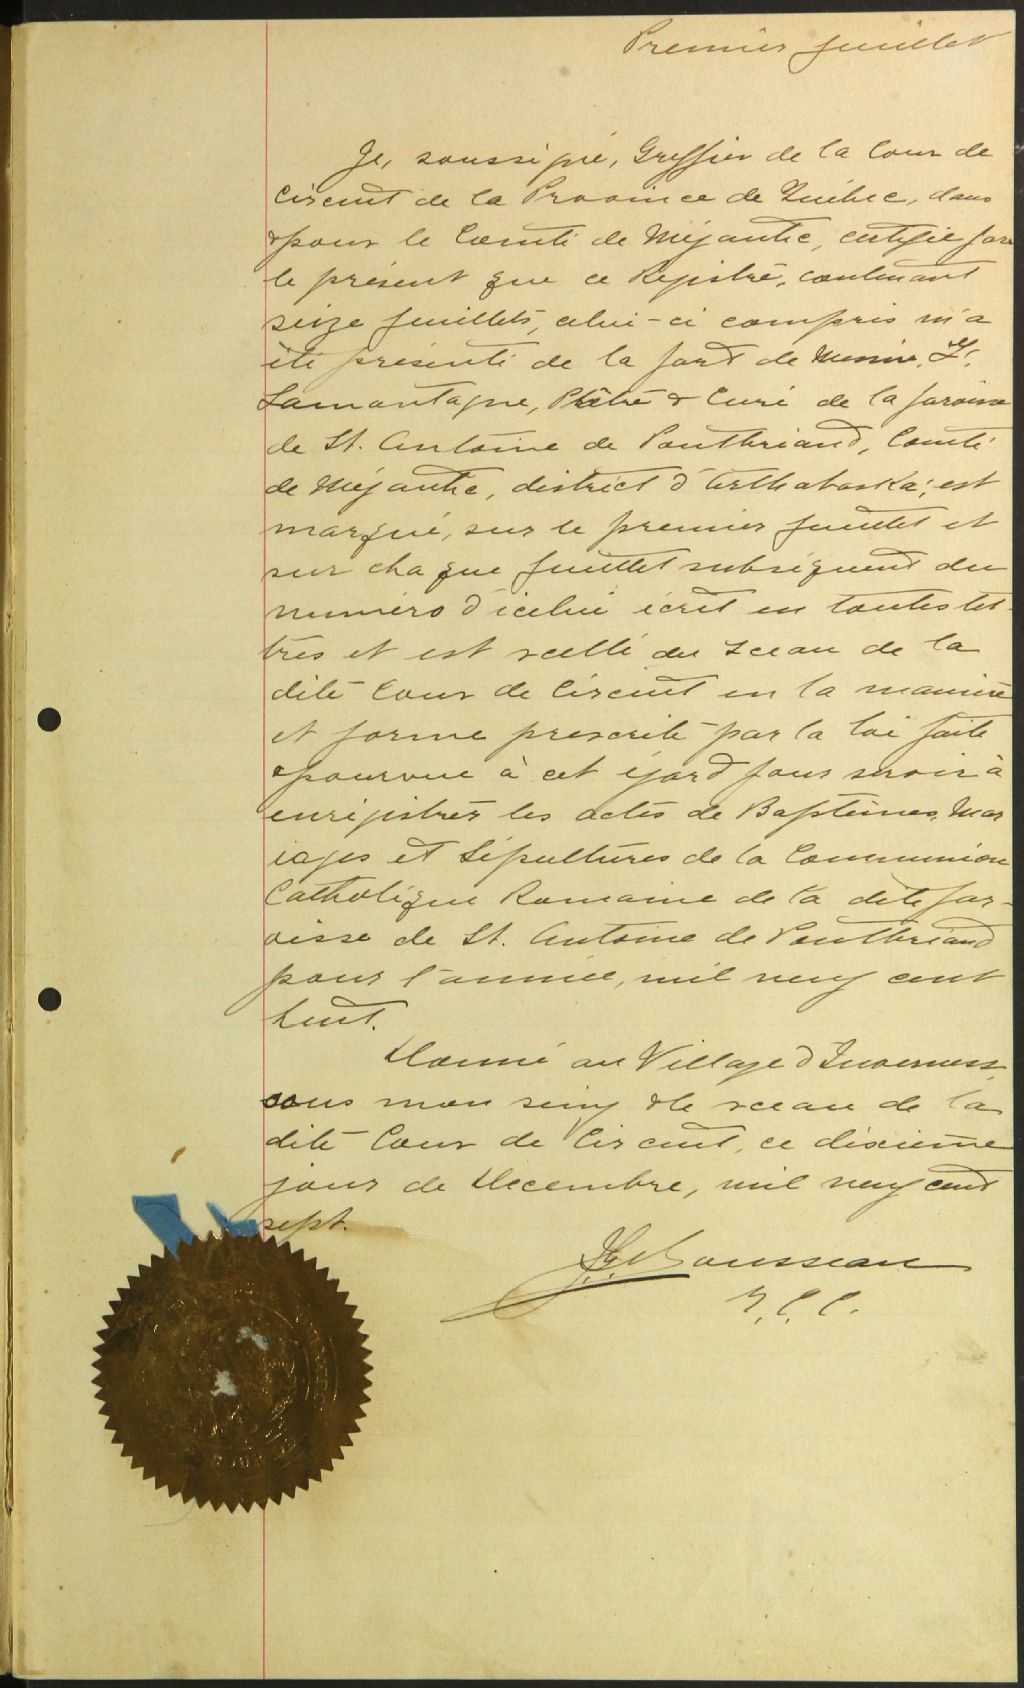 Premier feuillet
Je, soussigné, Greffier de la Cour de
Circuit de la Province de Québec, dans
& pour le Comté de Mégantic, certifie par
le présent que ce Registre, contenant
seize feuillets, celui-ci compris m'a
été présenté de la part de Messire L.
Lamontagne, Prêtre & Curé de la paroisse
de St. Antoine de Pontbriand, Comté
de Mégantic, district d'Arthabaska; est
marqué, sur le premier feuillet et
sur chaque feuillet subséquent du
numéro d'icelui écrit en toutes let-
tres et est scellé du Sceau de la
dite Cour de Circuit en la manière
et forme prescrite par la loi faite
& pourvue à cet égard pour servir à
enregistrer les actes de Baptêmes, Mar
iages et Sépultures de la Communion
Catholique Romaine de la dite par-
oisse de St. Antoine de Pontbriand
pour l'année, mil neuf cent
huit.
Donné au Village d'Inverness,
sous mon seing & le sceau de la
dite Cour de Circuit, ce dixième
jour de Decembre, mil neuf cent
sept.
Rousseau
G. C. C.